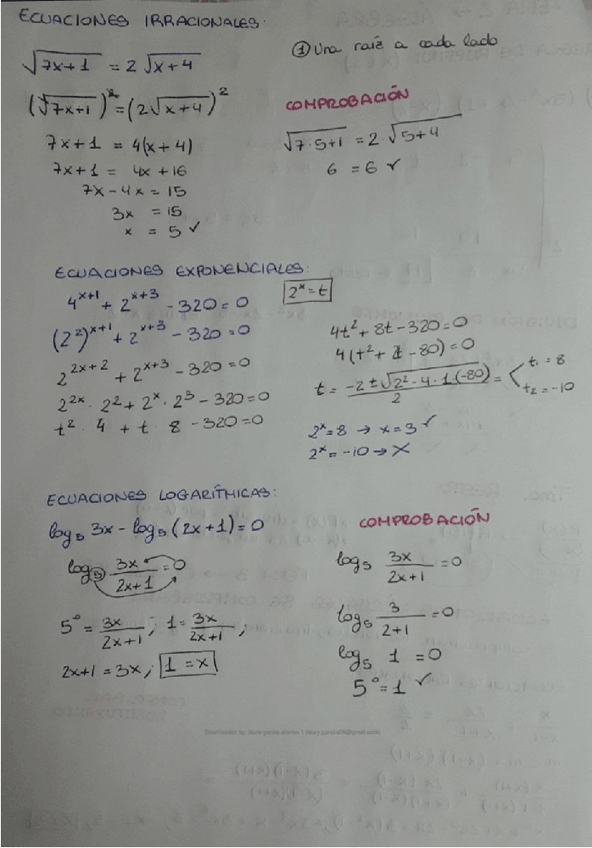 ECUACIONES IRRACIONALES:
① Una raíz a cada lado
√(7x+1) = 2√(x+4)
(√(7x+1))² = (2√(x+4))²
7x+1 = 4(x+4)
7x+1 = 4x+16
7x-4x = 15
3x = 15
x = 5 ✓
COMPROBACIÓN
√(7·5+1) = 2√(5+4)
6 = 6 ✓
ECUACIONES EXPONENCIALES:
4^(x+1) + 2^(x+3) - 320 = 0
2^x = t
(2²)^(x+1) + 2^(x+3) - 320 = 0
2^(2x+2) + 2^(x+3) - 320 = 0
2^(2x) · 2² + 2^x · 2³ - 320 = 0
t² · 4 + t · 8 - 320 = 0
4t² + 8t - 320 = 0
4(t² + 2t - 80) = 0
t = (-2 ± √(2² - 4·1(-80)))/2 = < t₁ = 8
t₂ = -10
2^x = 8 → x = 3 ✓
2^x = -10 → X
ECUACIONES LOGARÍTMICAS:
log₅ 3x - log₅ (2x+1) = 0
log₅ 3x/(2x+1) = 0
5⁰ = 3x/(2x+1) ; 1 = 3x/(2x+1) ;
2x+1 = 3x ; 1 = x
COMPROBACIÓN
log₅ 3x/(2x+1) = 0
log₅ 3/(2+1) = 0
log₅ 1 = 0
5⁰ = 1 ✓